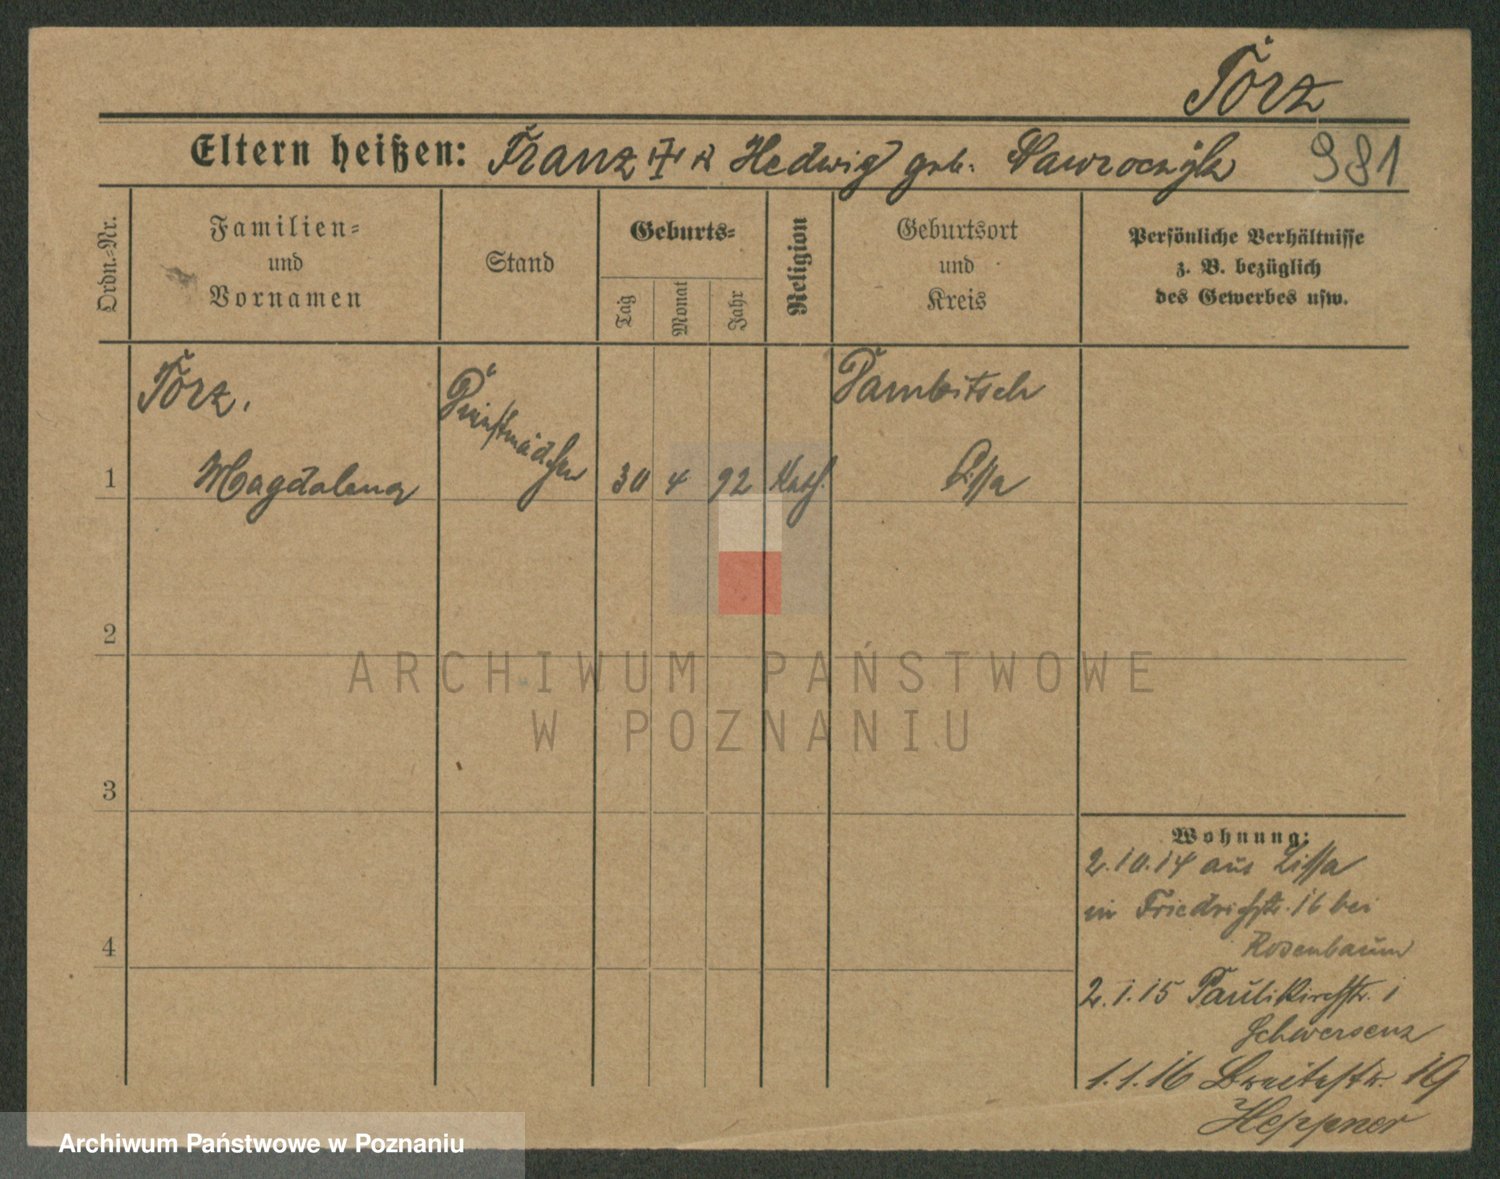 Törz
Eltern heißen: Franz u. Hedwig geb. Wawroczyk 981
Ordn.-Nr.
Familien-
und
Vornamen
Stand
Geburts-
Tag
Monat
Jahr
Religion
Geburtsort
und
Kreis
Persönliche Verhältnisse
z. B. bezüglich
des Gewerbes usw.
Törz.
Magdalena
Dienstmädchen
30 4 92 Kath.
Dambitsch
Lissa
1
2
3
4
Wohnung:
2.10.14 aus Lissa
in Friedrichstr. 16 bei
Rosenbaum
2.1.15 Paulikirchstr. 1
Schwersenz
1.1.16 Breitestr. 19
Heppner
ARCHIWUM PAŃSTWOWE
W POZNANIU
Archiwum Państwowe w Poznaniu